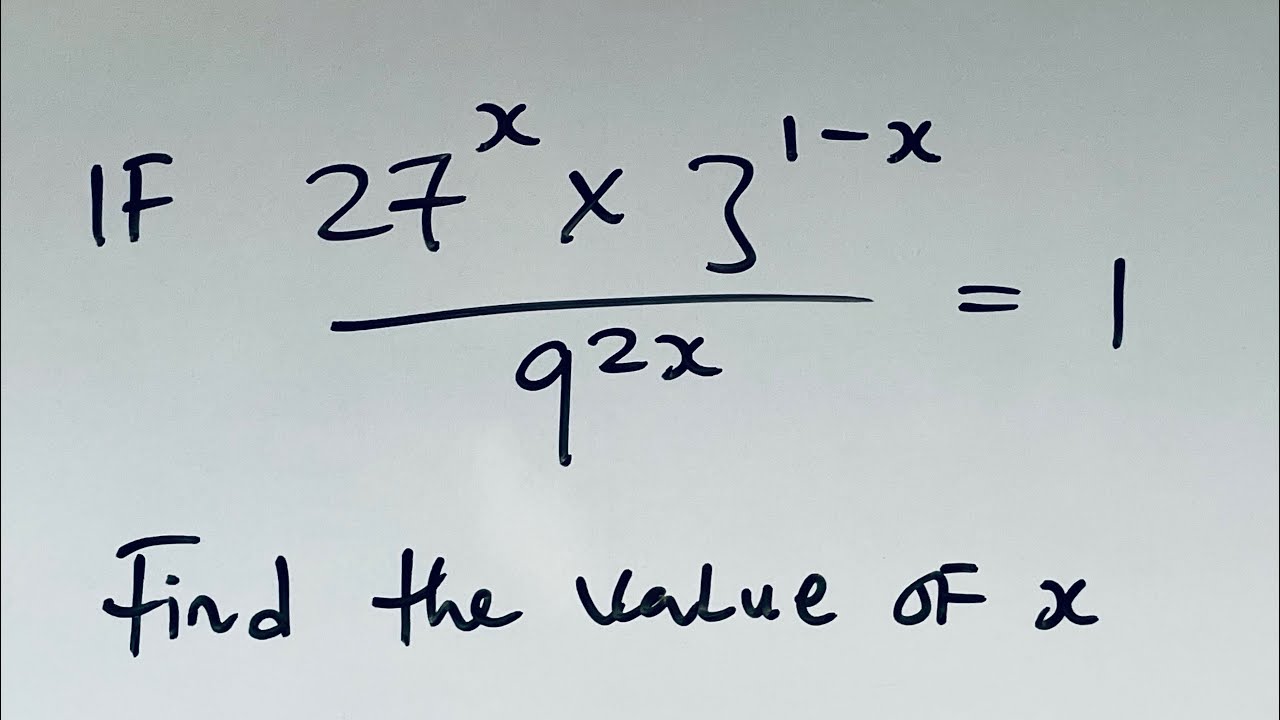 IF 27^x × 3^(1-x) / 9^(2x) = 1
Find the value of x